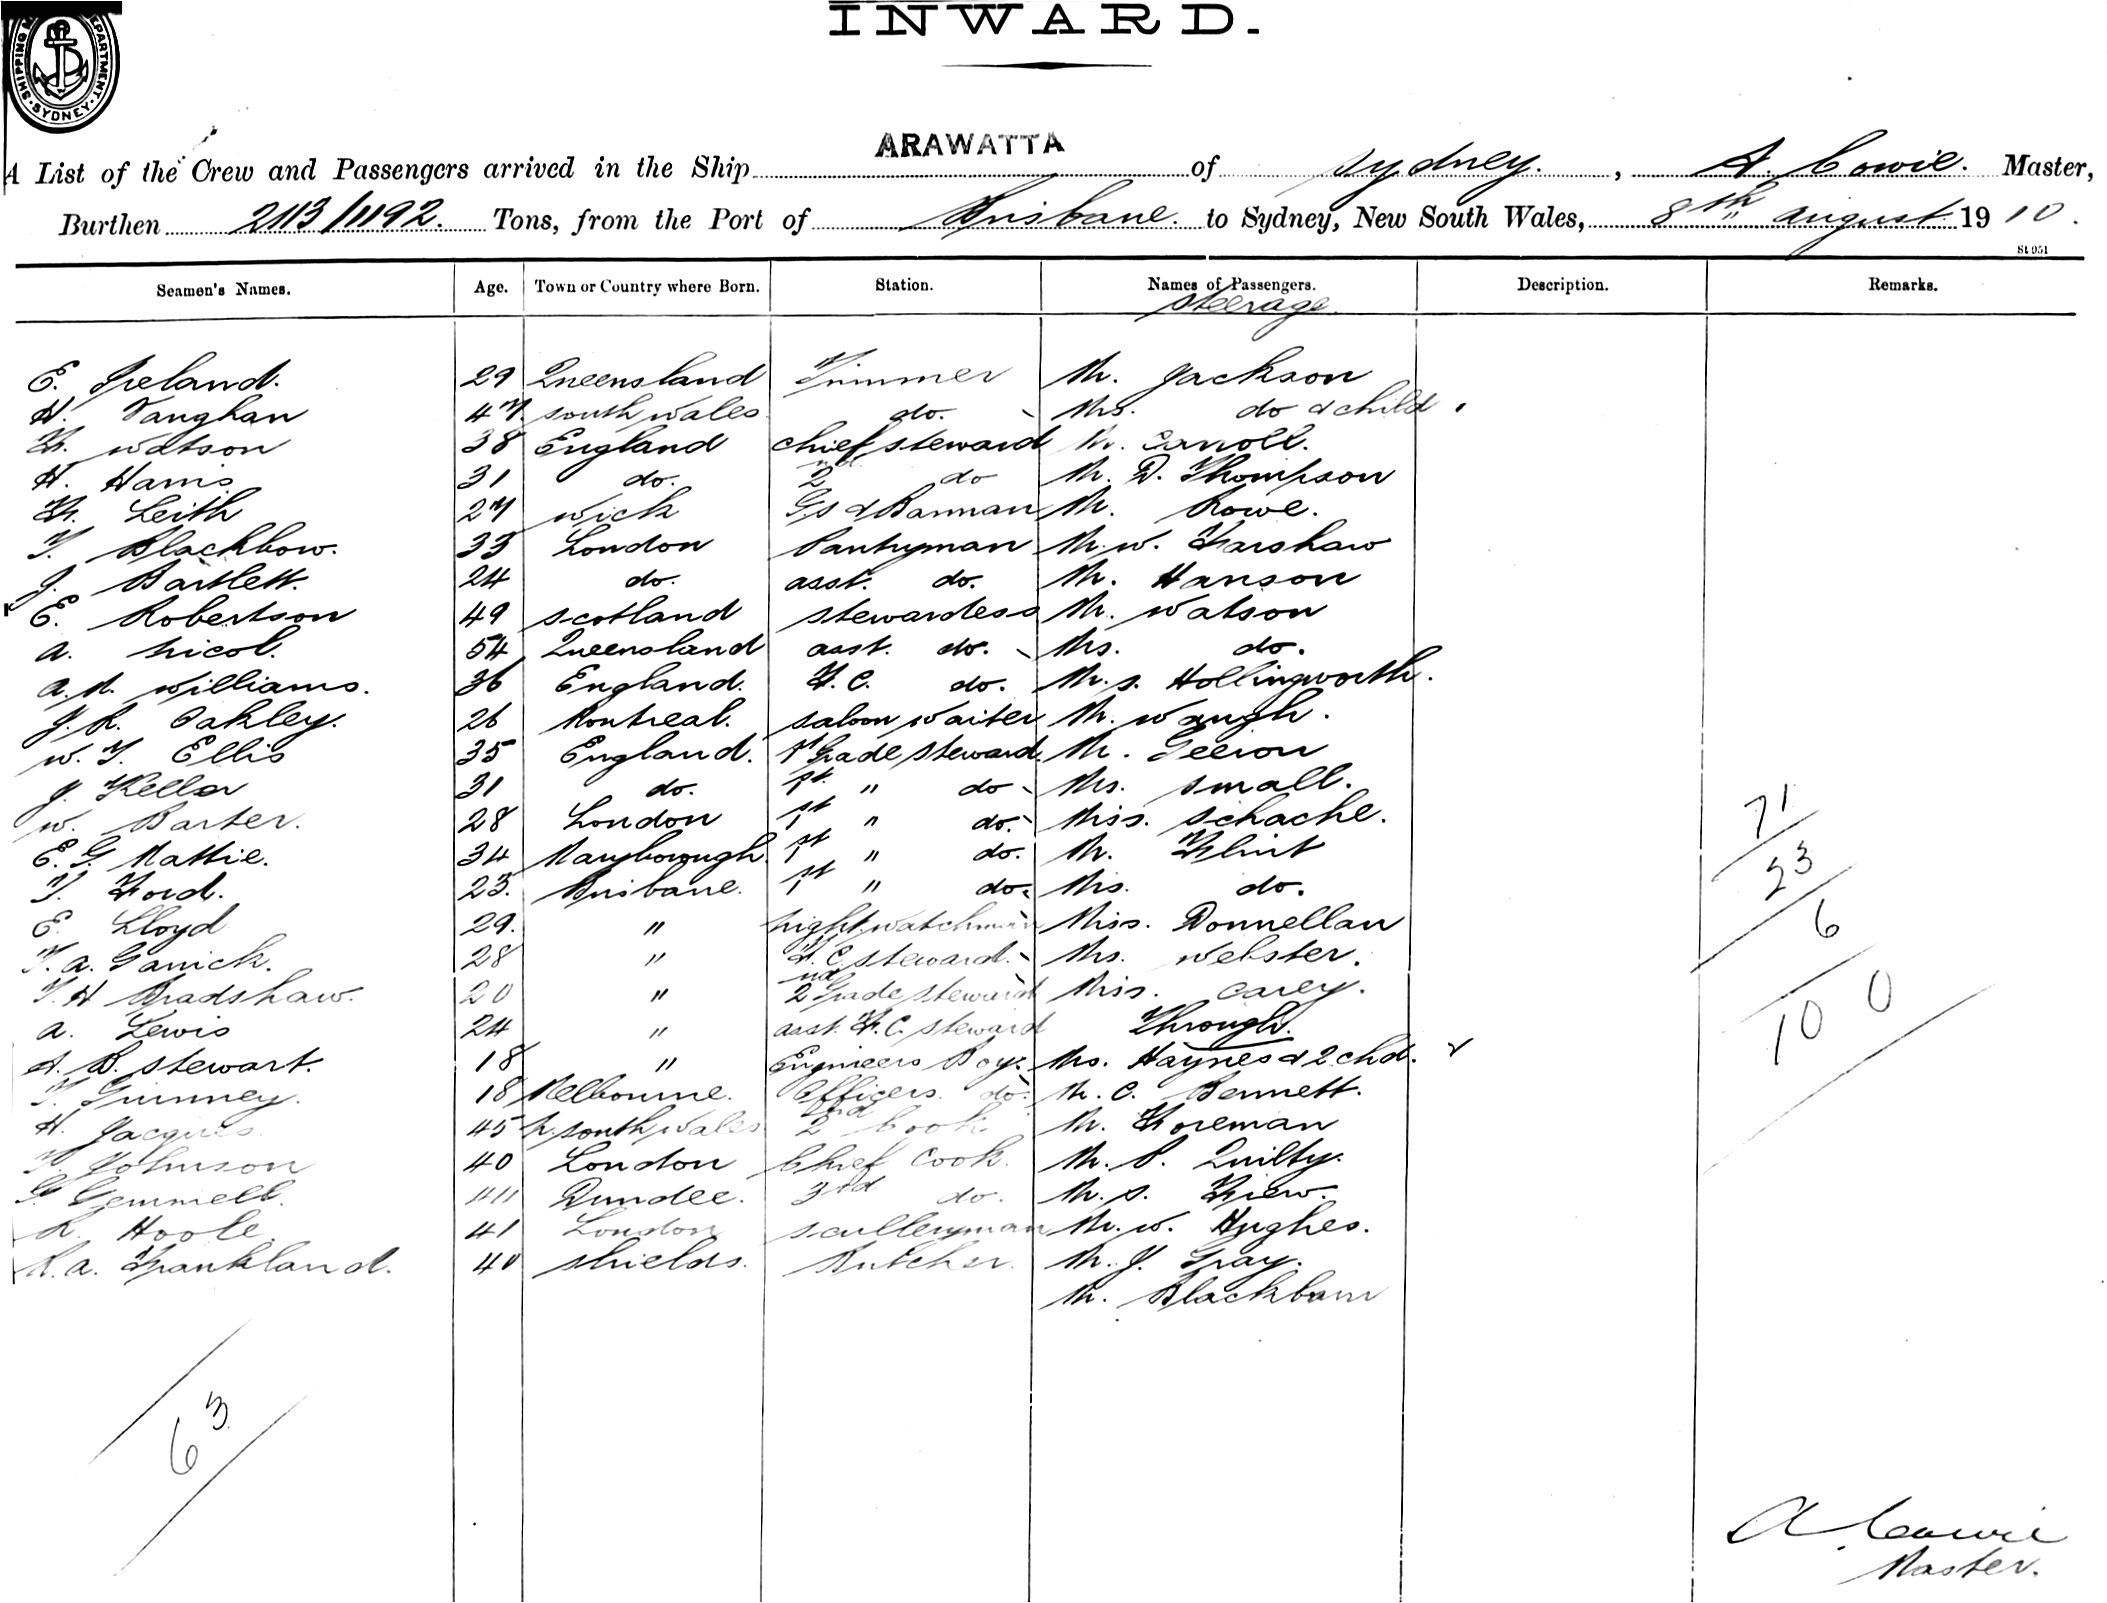 INWARD.
SHIPPING DEPARTMENT. SYDNEY.
A List of the Crew and Passengers arrived in the Ship ARAWATTA of Sydney., A. Cowie. Master,
Burthen 2113/1192. Tons, from the Port of Brisbane. to Sydney, New South Wales, 8th August 1910.
St 951
Seamen's Names. Age. Town or Country where Born. Station. Names of Passengers. Description. Remarks.
Steerage
E. Ireland. 29 Queensland Trimmer Mr. Jackson
H. Vaughan 47. South Wales do. Mrs. do & child
F. Watson 38 England Chief Steward Mr. Carroll.
H. Harris 31 do. 2nd do Mr. D. Thompson
F. Leith 27 Wick G.S & Barman Mr. Rowe.
T. Blackbow. 33 London Pantryman Mr. W. Farshaw
J. Bartlett. 24 do. asst. do. Mr. Hanson
E. Robertson 49 Scotland Stewardess Mr. Watson
A. Nicol. 54 Queensland asst. do. Mrs. do.
A. M. Williams. 36 England. F. C. do. Mr. S. Hollingworth.
J. R. Oakley. 26 Montreal. Saloon Waiter Mr. Waugh.
W. T. Ellis 35 England. 1st Grade Steward. Mr.
J. Kella 31 do. 1st " do Mrs. Small.
W. Barter. 28 London 1st " do. Miss. Schache.
E. G. Mattie. 34 Maryborough. 1st " do. Mr. Flint
T. Ford. 23. Brisbane. 1st " do. Mrs. do.
E. Lloyd 29. " Night Watchman Miss. Donnellan
T. A. Garrick. 28 " F. C. Steward. Mrs. Webster.
T. H Bradshaw. 20 " 2nd Grade Steward Miss. Carey.
A. Lewis 24 " asst. F. C. Steward Through.
A. B. Stewart. 18 " Engineers Boy. Mrs. Haynes & 2 chd.
T. Guinney. 18 Melbourne. Officers do. Mr. C. Bennett.
H. Jacques 45 N. South Wales 2nd Cook Mr. Foreman
T. Johnson 40 London Chief Cook. Mr. P. Quilty.
G. Gemmell. Dundee. 3rd do. Mr. S. Friew.
R. Hoole 41 London Sculleryman Mr. W. Hughes.
R. A. Frankland. 40 Shields. Butcher. Mr. J. Gray.
Mr. Blackburn
71
23
6
100
63
A Cowie
Master.